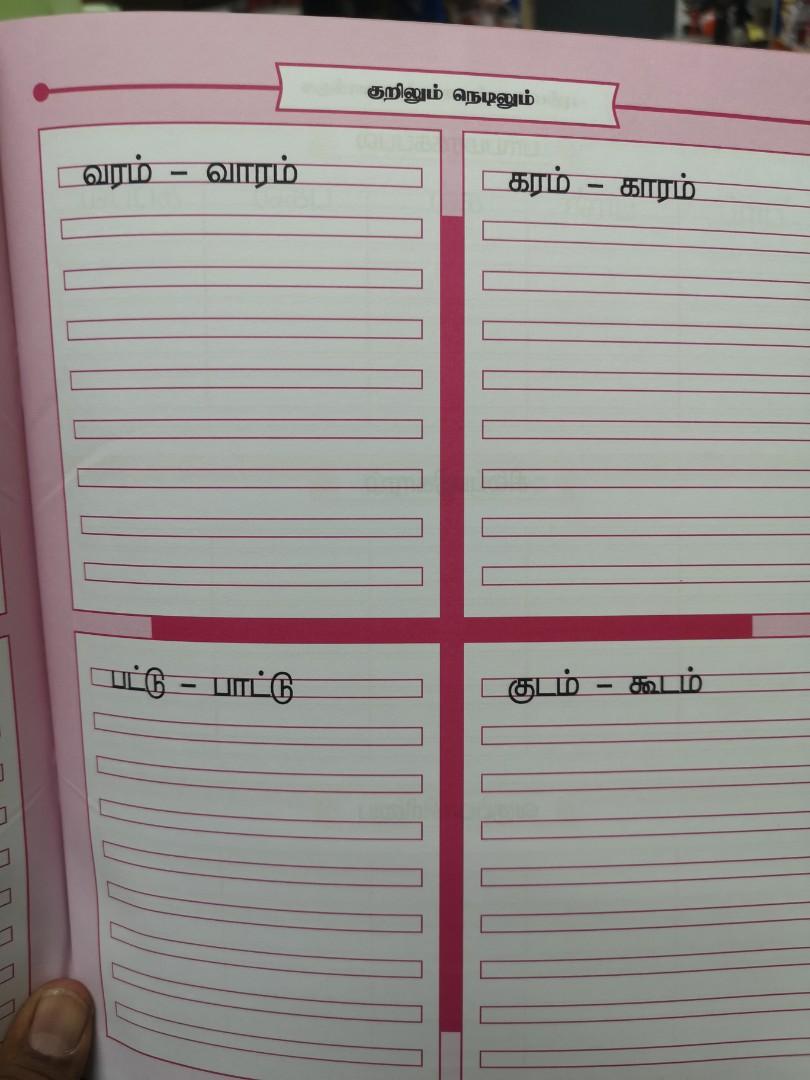 குறிலும் நெடிலும்
வரம் – வாரம்
கரம் – காரம்
பட்டு – பாட்டு
குடம் – கூடம்